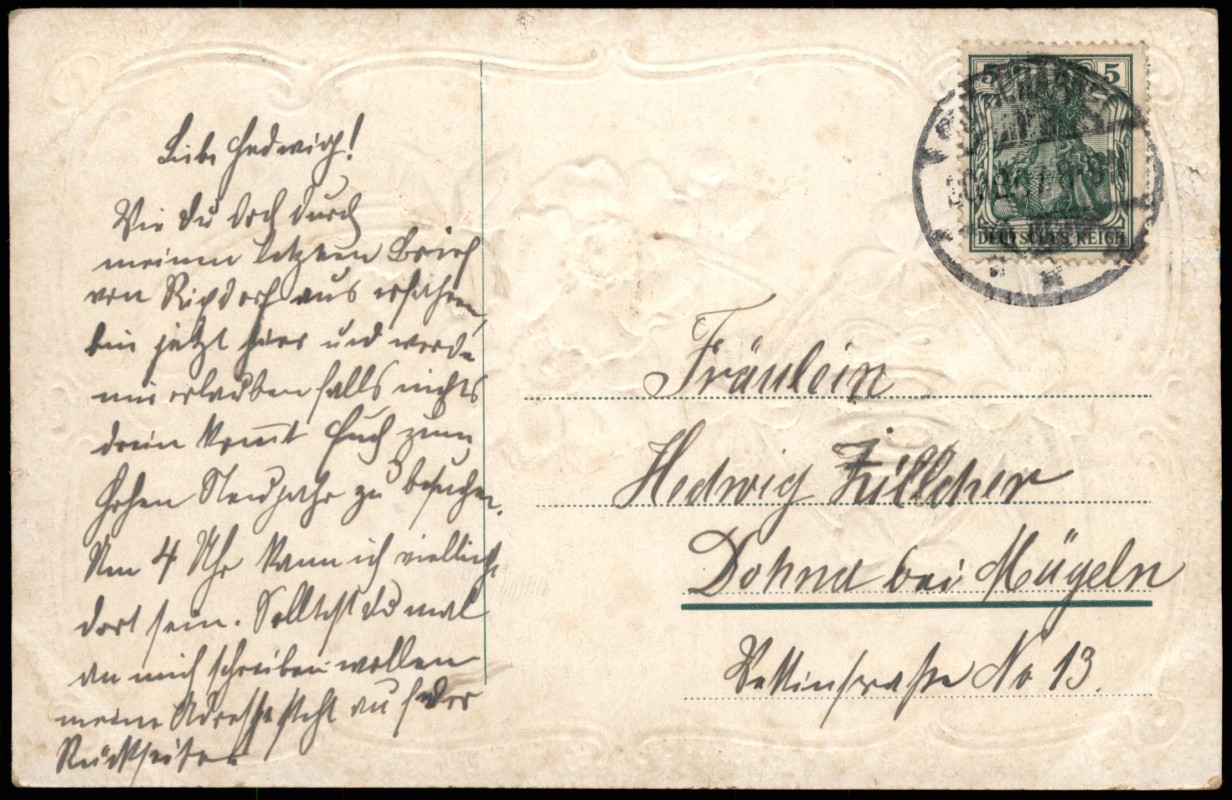 Liebe Hedwig!
Wie du doch durch
meinen letzten Brief
von Rixdorf aus erfahren,
bin jetzt hier und werde
mir erlauben falls nichts
drein kom̅t Euch zum
hohen Neujahr zu besuchen.
Um 4 Uhr kann ich vielleicht
dort sein. Solltest du mal
an mich schreiben wollen
meine Adresse steht auf der
Rückseite.
5 5
DEUTSCHES REICH
Fräulein
Hedwig Zillcher
Dohna bei Mügeln
Wettinstraße No 13.